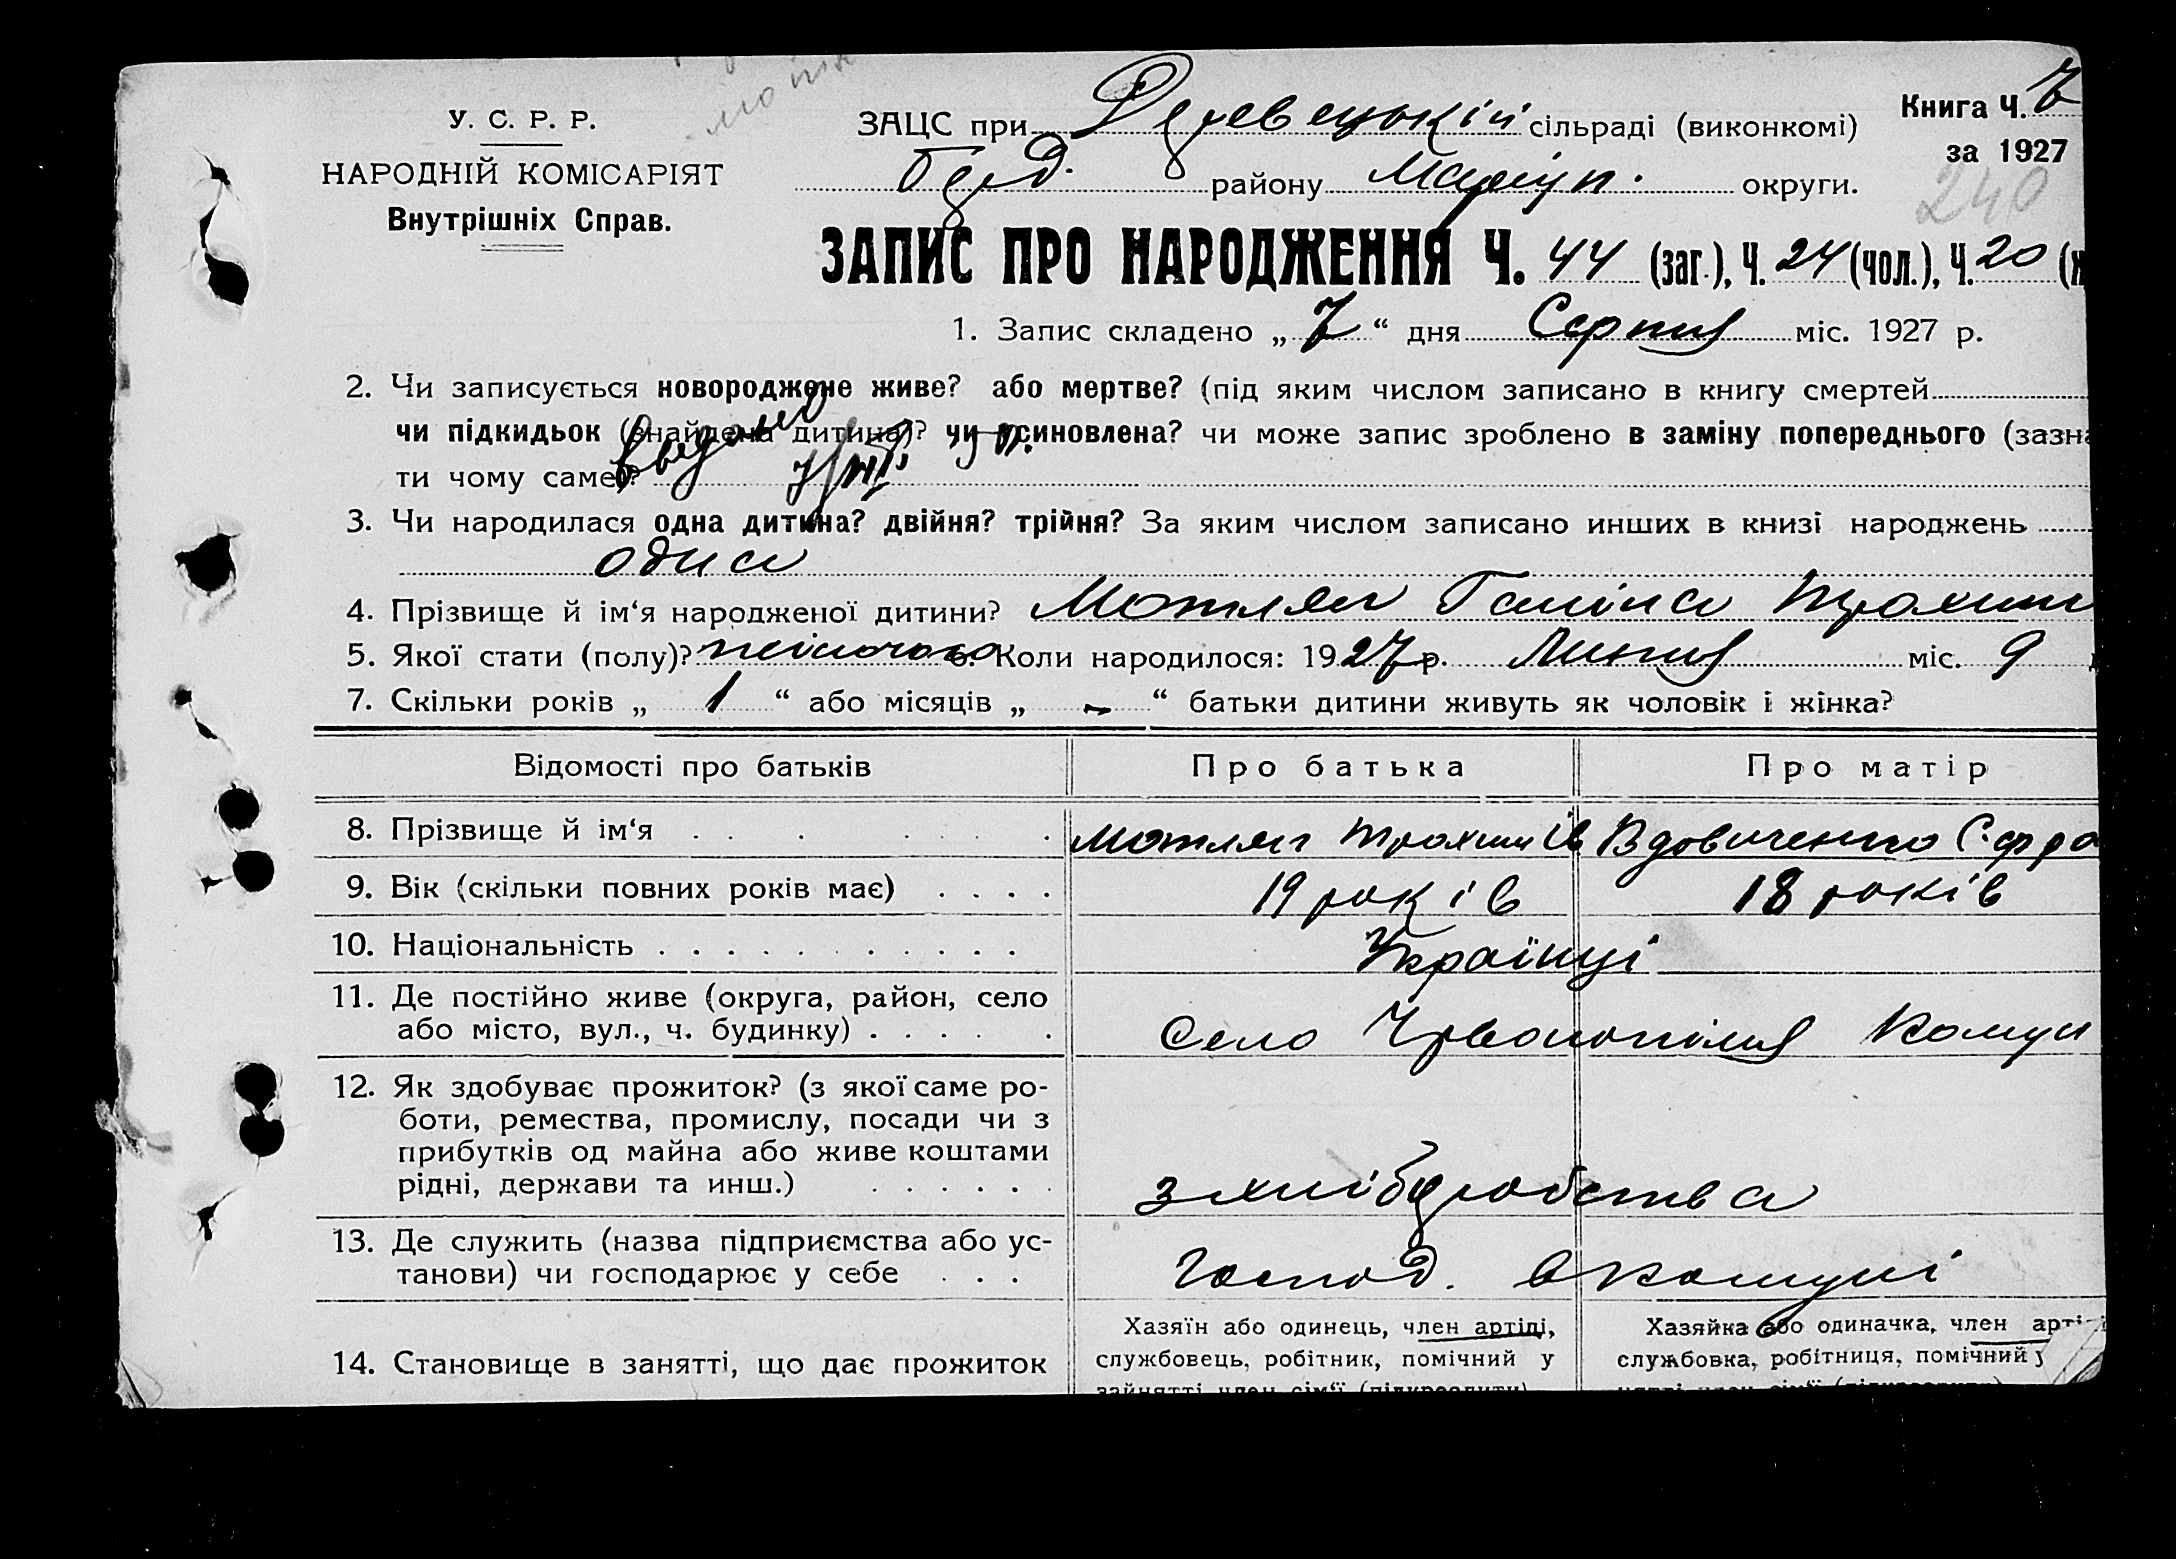 У. С. Р. Р.
НАРОДНІЙ КОМІСАРІЯТ
Внутрішніх Справ.
ЗАЦС при Деревецькій сільраді (виконкомі)
Книга Ч. 7
за 1927
240
району Маріуп. округи.
ЗАПИС ПРО НАРОДЖЕННЯ Ч. 44 (заг.), Ч. 24 (чол.), Ч. 20 (ж
1. Запис складено „ 7 “ дня Серпня міс. 1927 р.
2. Чи записується новороджене живе? або мертве? (під яким числом записано в книгу смертей
чи підкидьок (знайдена дитина)? чи усиновлена? чи може запис зроблено в заміну попереднього (зазна
ти чому саме)?
видано
3. Чи народилася одна дитина? двійня? трійня? За яким числом записано инших в книзі народжень
одна
4. Прізвище й ім‘я народженої дитини? Мотляг Галіна Трохим
5. Якої стати (полу)? жіночого 6. Коли народилося: 1927 р. Липня міс. 9 д
7. Скільки років „ 1 “ або місяців „ - “ батьки дитини живуть як чоловік і жінка?
Відомості про батьків Про батька Про матір
8. Прізвище й ім‘я Мотляг Трохим Ів Вдовиченко Єфро
9. Вік (скільки повних років має) 19 років 18 років
10. Національність Українці
11. Де постійно живе (округа, район, село
або місто, вул., ч. будинку) Село Комун
12. Як здобуває прожиток? (з якої саме ро-
боти, ремества, промислу, посади чи з
прибутків од майна або живе коштами
рідні, держави та инш.) з хліборобства
13. Де служить (назва підприємства або ус-
танови) чи господарює у себе Господ. в комуні
14. Становище в занятті, що дає прожиток
Хазяїн або одинець, член артілі,
службовець, робітник, помічний у
зайнятті член сім‘ї (підкреслити)
Хазяйка або одиначка, член арті
службовка, робітниця, помічний у
нятті член сім‘ї (підкреслити)